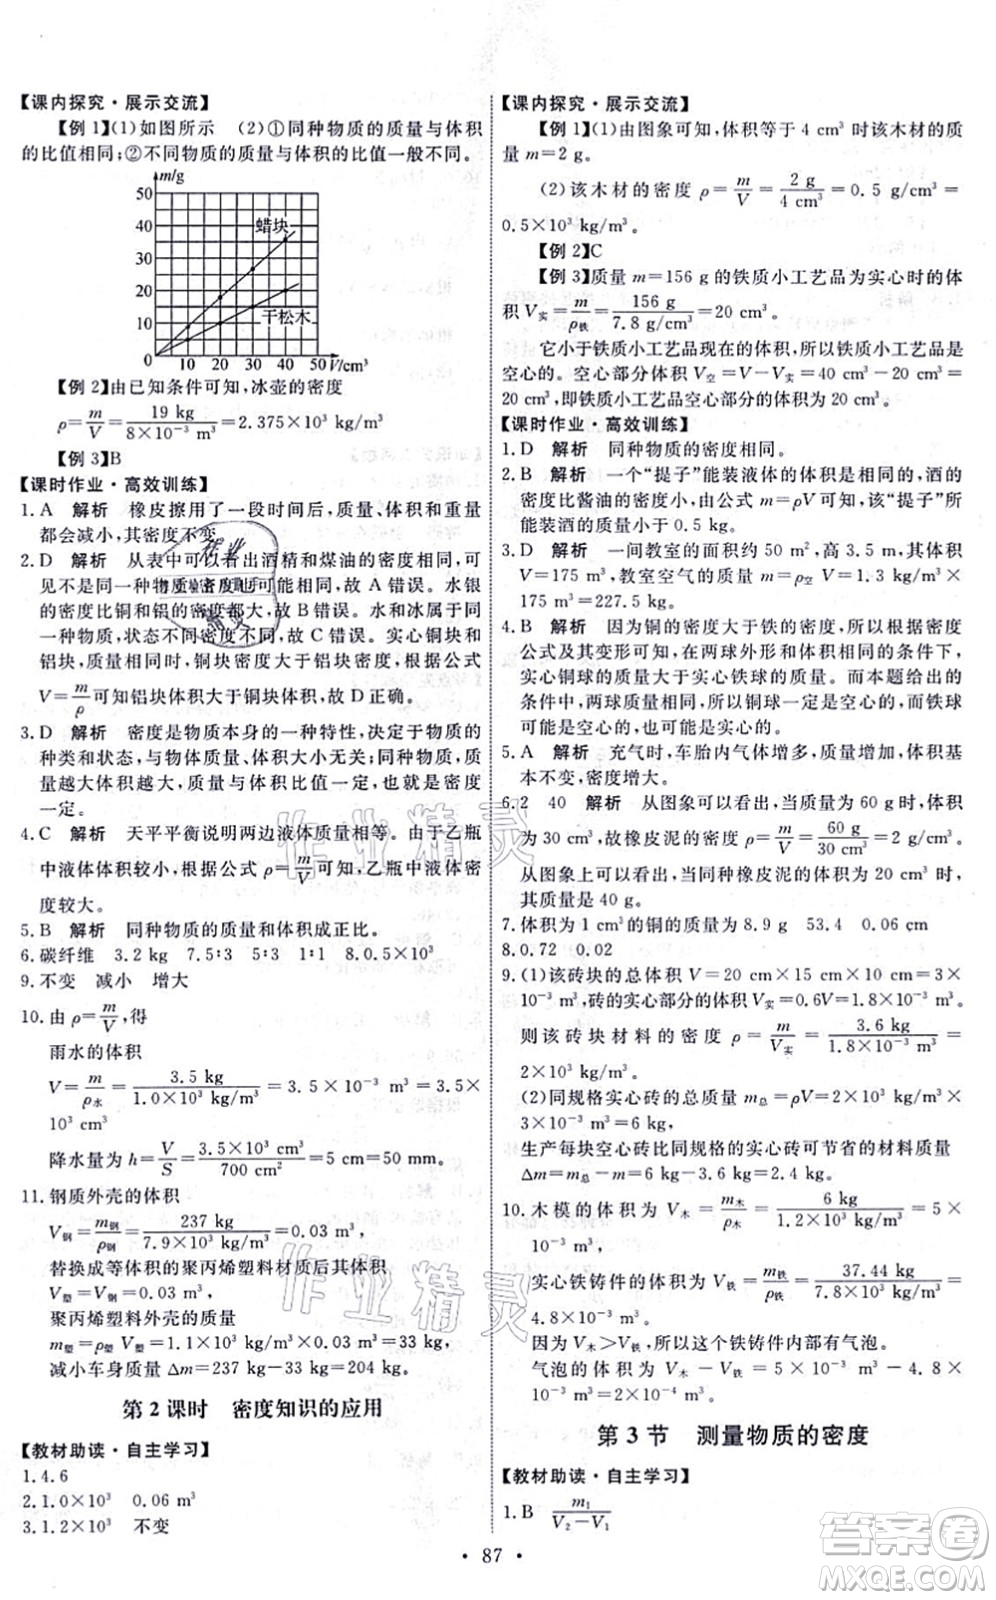 【课内探究·展示交流】
【例 1】(1)如图所示 (2)①同种物质的质量与体积
的比值相同;②不同物质的质量与体积的比值一般不同。
m/g
50
40
30
20
10
0
10 20 30 40 50 V/cm³
蜡块
干松木
【例 2】由已知条件可知,冰壶的密度
ρ=m/V=19 kg/(8×10⁻³ m³)=2.375×10³ kg/m³
【例 3】B
【课时作业·高效训练】
1. A 解析 橡皮擦用了一段时间后,质量、体积和重量
都会减小,其密度不变。
2. D 解析 从表中可以看出酒精和煤油的密度相同,可
见不是同一种物质,密度也可能相同,故 A 错误。水银
的密度比铜和铝的密度都大,故 B 错误。水和冰属于同
一种物质,状态不同密度不同,故 C 错误。实心铜块和
铝块,质量相等时,铜块密度大于铝块密度,根据公式
V=m/ρ可知铝块体积大于铜块体积,故 D 正确。
3. D 解析 密度是物质本身的一种特性,决定于物质的
种类和状态,与物体质量、体积大小无关;同种物质,质
量越大体积越大,质量与体积比值一定,也就是密度
一定。
4. C 解析 天平平衡说明两边液体质量相等。由于乙瓶
中液体体积较小,根据公式 ρ=m/V可知,乙瓶中液体密
度较大。
5. B 解析 同种物质的质量和体积成正比。
6. 碳纤维 3.2 kg 7.5∶3 5∶3 1∶1 0.8×10³
9. 不变 减小 增大
10. 由 ρ=m/V,得
雨水的体积
V=m/ρ水=3.5 kg/(1.0×10³ kg/m³)=3.5×10⁻³ m³=3.5×
10³ cm³
降水量为 h=V/S=3.5×10³ cm³/700 cm²=5 cm=50 mm。
11. 钢质外壳的体积
V钢=m钢/ρ钢=237 kg/(7.9×10³ kg/m³)=0.03 m³
替换成等体积的聚丙烯塑料材质后其体积
V塑=V钢=0.03 m³
聚丙烯塑料外壳的质量
m塑=ρ塑V塑=1.1×10³ kg/m³×0.03 m³=33 kg
减小车身质量 Δm=237 kg-33 kg=204 kg。
第 2 课时 密度知识的应用
【教材助读·自主学习】
1. 4.6
2. 1.0×10³ 0.06 m³
3. 1.2×10³ 不变
【课内探究·展示交流】
【例 1】(1)由图象可知,体积等于 4 cm³ 时该木材的质
量 m=2 g。
(2)该木材的密度 ρ=m/V=2 g/4 cm³=0.5 g/cm³=
0.5×10³ kg/m³。
【例 2】C
【例 3】质量 m=156 g 的铁质小工艺品为实心时的体
积 V实=m/ρ铁=156 g/(7.8 g/cm³)=20 cm³。
它小于铁质小工艺品现在的体积,所以铁质小工艺品是
空心的。空心部分体积 V空=V-V实=40 cm³-20 cm³=
20 cm³,即铁质小工艺品空心部分的体积为 20 cm³。
【课时作业·高效训练】
1. D 解析 同种物质的密度相同。
2. B 解析 一个“提子”能装液体的体积相同,酒的
密度比酱油的密度小,由公式 m=ρV可知,该“提子”所
能装酒的质量小于 0.5 kg。
3. D 解析 一间教室的面积约 50 m²,高 3.5 m,其体积
V=175 m³,教室空气的质量 m=ρ空V=1.3 kg/m³×
175 m³=227.5 kg。
4. B 解析 因为铜的密度大于铁的密度,所以根据密度
公式及其变形可知,在两球外部体积相同的条件下,
实心铜球的质量大于实心铁球的质量。而本题给出的
条件中,两球质量相同,所以铜球一定是空心的,而铁球
可能是空心的,也可能是实心的。
5. A 解析 充气时,车胎内气体增多,质量增加,体积基
本不变,密度增大。
6. 2 40 解析 从图象可以看出,当质量为 60 g 时,体积
为 30 cm³,故橡皮泥的密度 ρ=m/V=60 g/30 cm³=2 g/cm³;
从图象上可以看出,当同种橡皮泥的体积为 20 cm³ 时,
其质量是 40 g。
7. 体积为 1 cm³的铜的质量为 8.9 g 53.4 0.06 cm
8. 0.72 0.02
9. (1)该砖块的总体积 V=20 cm×15 cm×10 cm=3×
10⁻³ m³,砖的实心部分的体积 V实=0.6V=1.8×10⁻³ m³。
则该砖块材料的密度 ρ=m/V实=3.6 kg/(1.8×10⁻³ m³)=
2×10³ kg/m³。
(2)同规格实心砖的总质量 m总=ρV=2×10³ kg/m³×
3×10⁻³ m³=6 kg,
生产每块空心砖比同规格的实心砖可节省的材料质量
Δm=m总-m=6 kg-3.6 kg=2.4 kg。
10. 木模的体积为 V木=m木/ρ木=6 kg/(1.2×10³ kg/m³)=5×
10⁻³ m³,
实心铁铸件的体积为 V铁=m铁/ρ铁=37.44 kg/(7.8×10³ kg/m³)=
4.8×10⁻³ m³。
因为 V木>V铁,所以这个铁铸件内部有气泡。
气泡的体积为 V木-V铁=5×10⁻³ m³-4.8×
10⁻³ m³=0.2×10⁻³ m³。
第 3 节 测量物质的密度
【教材助读·自主学习】
1. B m₁/(V₂-V₁)
· 87 ·
作业精灵
作业精灵
作业精灵
答案圈
MXQE.COM